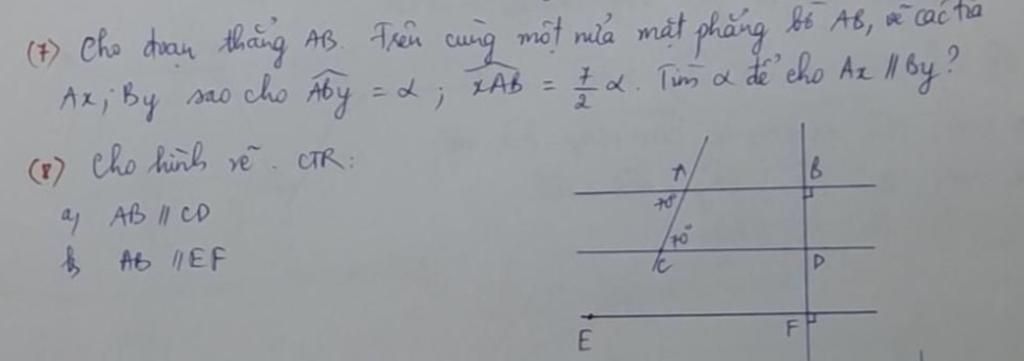 (7) Cho đoạn thẳng AB. Trên cùng một nửa mặt phẳng bờ AB, vẽ các tia
Ax; By sao cho ABy = α ; xAB = 7/2 α. Tìm α để cho Ax // By?
(8) Cho hình vẽ. CTR:
a, AB // CD
b, AB // EF
A B
70°
70°
C D
E F